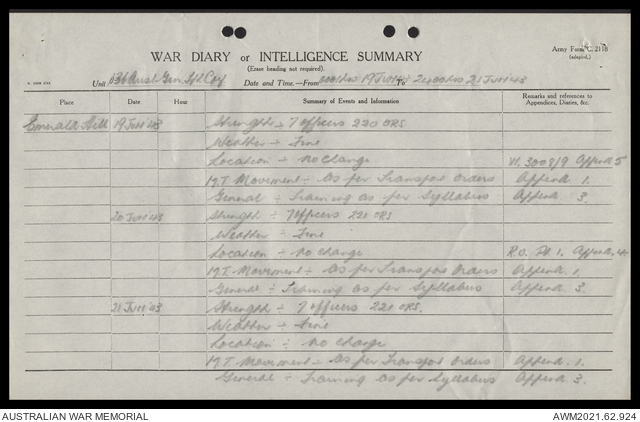 Army Form C. 2118
(adapted.)
WAR DIARY or INTELLIGENCE SUMMARY
(Erase heading not required).
Unit 136 Aust Gen Tpt Coy Date and Time.—From 0001hrs 19 Jun 43 To 2400hrs 21 Jun 43
Place Date Hour Summary of Events and Information Remarks and references to
Appendices, Diaries, &c.
Emerald Hill 19 Jun '43 Strength ÷ 7 Officers 220 ORS
Weather ÷ Fine
Location ÷ No Change VI. 3009/9 Append 5
M.T. Movement ÷ As per Transport Orders Append 1.
General ÷ Training as per Syllabus Append 3.
20 Jun '43 Strength ÷ 7 Officers 220 ORS
Weather ÷ Fine
Location ÷ No Change R.O. Pt 1. Append. 4.
M.T. Movement ÷ As per Transport Orders Append 1.
General ÷ Training as per Syllabus Append 3.
21 Jun '43 Strength ÷ 7 Officers 220 ORS.
Weather ÷ Fine
Location ÷ No Change
M.T. Movement ÷ As per Transport Orders Append. 1.
General ÷ Training as per Syllabus Append 3.
AUSTRALIAN WAR MEMORIAL AWM2021.62.924